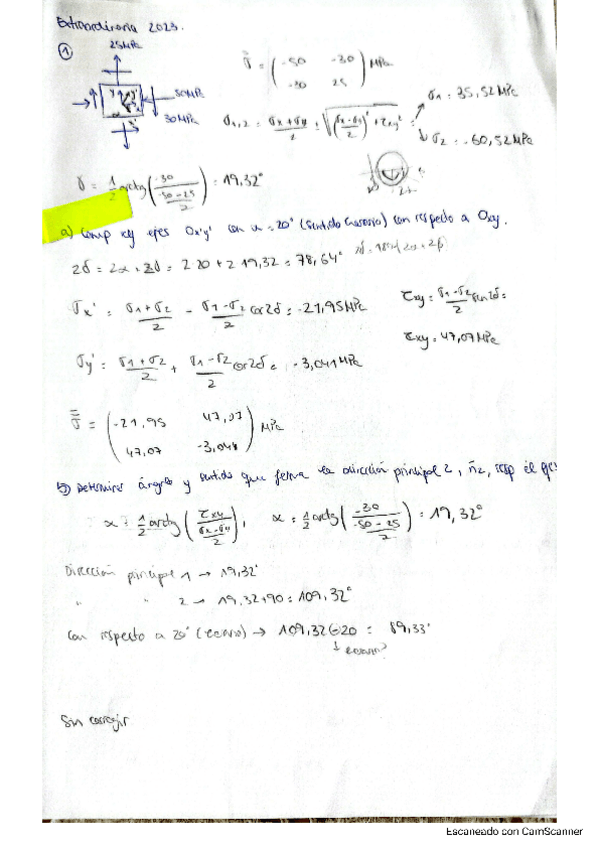 Extraordinaria 2023.
①
25MPa
50MPa
30MPa
σ̿ = ( -50 -30
-30 25 ) MPa
σ1,2 = σx+σy/2 ± √((σx-σy/2)² + τxy²) =
σ1 = 35,52MPa
σ2 = -60,52MPa
γ = 1/2 arctg( -30 / (-50-25/2) ) = 19,32°
a) Comp ejes Ox'y' con α=20° (sentido horario) con respecto a Oxy.
2δ = 2α + 2γ = 2·20 + 2·19,32 = 78,64°
σx' = σ1+σ2/2 - σ1-σ2/2 cos2δ = -21,95MPa
τxy = σ1-σ2/2 sen2δ =
τxy = 47,07MPa
σy' = σ1+σ2/2 + σ1-σ2/2 cos2δ = -3,041MPa
σ̿ = ( -21,95 47,07
47,07 -3,048 ) MPa
b) Determine ángulo y sentido que forma la dirección principal 2, n̄2, resp el eje
α = 1/2 arctg( τxy / (σx-σy/2) ), α = 1/2 arctg( -30 / (-50-25/2) ) = 19,32°
Dirección principal 1 → 19,32°
" " 2 → 19,32+90 = 109,32°
Con respecto a 20° (horario) → 109,32 ⊖ 20 = 89,33°
↓ horario?
Sin corregir
Escaneado con CamScanner